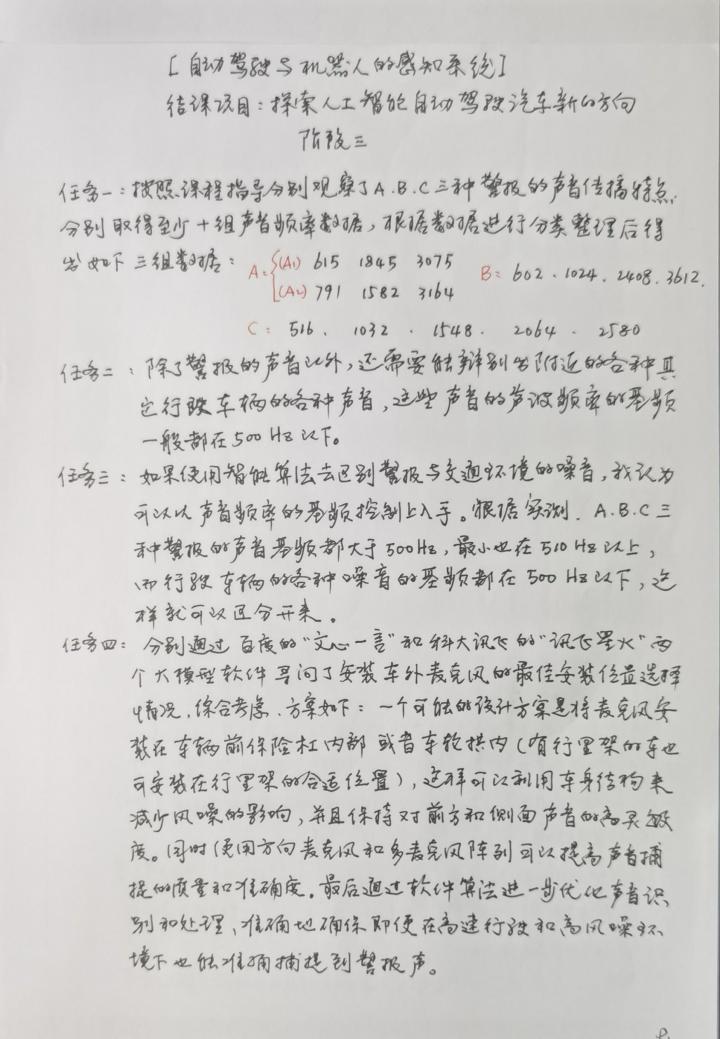 [自动驾驶与机器人的感知系统]
结课项目：探索人工智能自动驾驶汽车新的方向
阶段三
任务一：按照课程指导分别观察了A.B.C三种警报的声音传播特点,
分别取得至少十组声音频率数据，根据数据进行分类整理后得
出如下三组数据：A={(A1) 615 1845 3075 B: 602 . 1024 . 2408 . 3612.
[(A2) 791 1582 3164
C: 516. 1032 . 1548. 2064 . 2580
任务二：除了警报的声音以外，还需要能辩别出附近的各种其
它行驶车辆的各种声音，这些声音的声波频率的基频
一般都在500Hz以下。
任务三：如果使用智能算法去区别警报与交通环境的噪音，我认为
可以以声音频率的基频控制上入手。根据实测. A.B.C三
种警报的声音基频都大于500Hz，最小也在510Hz以上，
而行驶车辆的各种噪音的基频都在500Hz以下，这
样就可以区分开来。
任务四：分别通过百度的“文心一言”和科大讯飞的“讯飞星火”两
个大模型软件寻问了安装车外麦克风的最佳安装位置选择
情况，综合考虑.方案如下：一个可能的设计方案是将麦克风安
装在车辆前保险杠内部或者车轮拱内（有行里架的车也
可安装在行里架的合适位置），这样可以利用车身结构来
减少风噪的影响，并且保持对前方和侧面声音的高灵敏
度。同时使用方向麦克风和多麦克风阵列可以提高声音捕
捉的质量和准确度。最后通过软件算法进一步优化声音识
别和处理，准确地确保即便在高速行驶和高风噪环
境下也能准确捕捉到警报声。